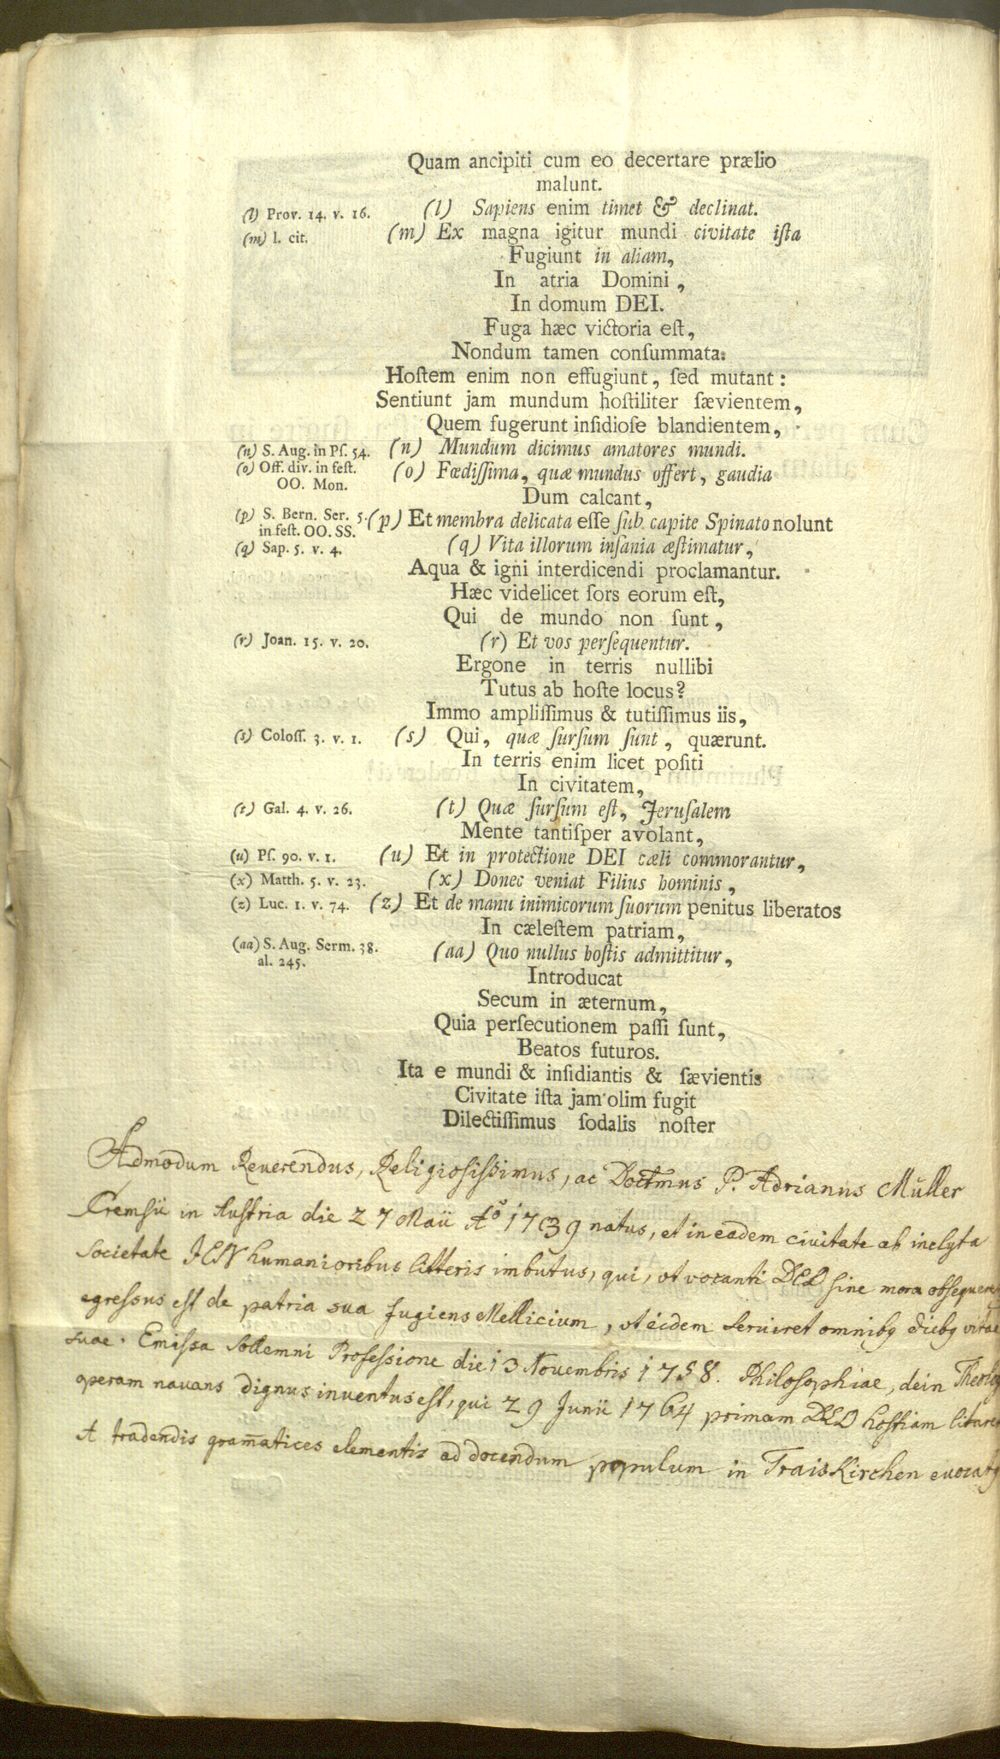 Quam ancipiti cum eo decertare prælio
malunt.
(l) Prov. 14. v. 16. (l) Sapiens enim timet & declinat.
(m) l. cit. (m) Ex magna igitur mundi civitate iſta
Fugiunt in aliam,
In atria Domini,
In domum DEI.
Fuga hæc victoria eſt,
Nondum tamen conſummata:
Hoſtem enim non effugiunt, ſed mutant:
Sentiunt jam mundum hoſtiliter ſævientem,
Quem fugerunt inſidioſe blandientem,
(n) S. Aug. in Pſ. 54. (n) Mundum dicimus amatores mundi.
(o) Off. div. in feſt. (o) Fœdiſſima, quæ mundus offert, gaudia
OO. Mon.
Dum calcant,
(p) S. Bern. Ser. 5. (p) Et membra delicata eſſe ſub capite Spinato nolunt
in feſt. OO. SS.
(q) Sap. 5. v. 4. (q) Vita illorum inſania æſtimatur,
Aqua & igni interdicendi proclamantur.
Hæc videlicet ſors eorum eſt,
Qui de mundo non ſunt,
(r) Joan. 15. v. 20. (r) Et vos perſequentur.
Ergone in terris nullibi
Tutus ab hoſte locus?
Immo ampliſſimus & tutiſſimus iis,
(s) Coloſſ. 3. v. 1. (s) Qui, quæ ſurſum ſunt, quærunt.
In terris enim licet poſiti
In civitatem,
(t) Gal. 4. v. 26. (t) Quæ ſurſum eſt, Jeruſalem
Mente tantiſper avolant,
(u) Pſ. 90. v. 1. (u) Et in protectione DEI cæli commorantur,
(x) Matth. 5. v. 23. (x) Donec veniat Filius hominis,
(z) Luc. 1. v. 74. (z) Et de manu inimicorum ſuorum penitus liberatos
In cæleſtem patriam,
(aa) S. Aug. Serm. 38. (aa) Quo nullus hoſtis admittitur,
al. 245.
Introducat
Secum in æternum,
Quia perſecutionem paſſi ſunt,
Beatos futuros.
Ita e mundi & inſidiantis & ſævientis
Civitate iſta jam olim fugit
Dilectiſſimus ſodalis noſter
Admodum Reverendus, Religiosissimus, ac Doctmus P. Adrianus Müller
Cremsii in Austria die 27 Maii Aõ 1739 natus, et in eadem civitate ab inclyta
Societate JESV humanioribus litteris imbutus, qui, vt vocanti DEO sine mora obsequere
egressus est de patria sua fugiens Mellicium, vt eidem seruiret omnibq diebq vitae
suae. Emissa sollemni Professione die 13 Novembris 1758. Philosophiae, dein Theolog
operam navans dignus inventus est, qui 29 Junii 1764 primam DEO hostiam litare
A tradendis gram̄atices elementis ad docendum populum in Traiskirchen evocatq